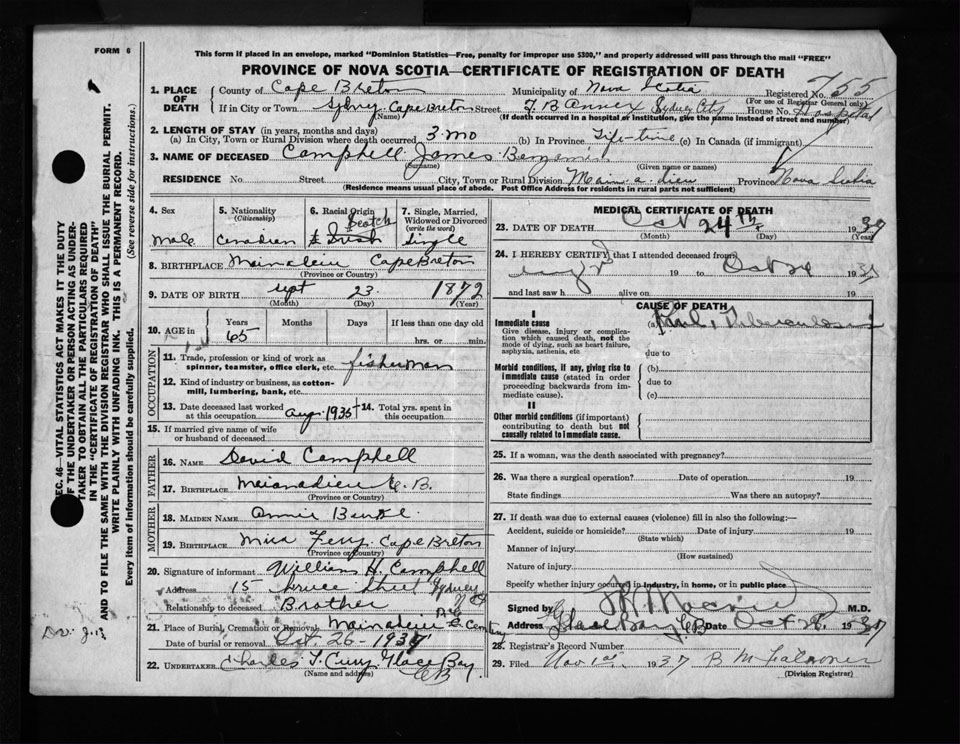 FORM 6
This form if placed in an envelope, marked "Dominion Statistics—Free, penalty for improper use $300," and properly addressed will pass through the mail "FREE"
PROVINCE OF NOVA SCOTIA—CERTIFICATE OF REGISTRATION OF DEATH
1. PLACE OF DEATH
County of Cape Breton Municipality of Nova Scotia Registered No. 755
(For use of Registrar General only)
If in City or Town Sydney Cape Breton Street T. B Annex Sydney City House No. Hospital
(Name) (If death occurred in a hospital or institution, give the name instead of street and number)
2. LENGTH OF STAY (in years, months and days)
(a) In City, Town or Rural Division where death occurred 3 mo (b) In Province Life-time (c) In Canada (if immigrant)
3. NAME OF DECEASED Campbell James Benjamin
(Surname) (Given name or names)
RESIDENCE No. Street City, Town or Rural Division Main. a. dieu Province Nova Scotia
(Residence means usual place of abode. Post Office Address for residents in rural parts not sufficient)
4. Sex
Male
5. Nationality
(Citizenship)
Canadian
6. Racial Origin
Scotch
& Irish
7. Single, Married, Widowed or Divorced
(write the word)
Single
8. BIRTHPLACE Mainadieu Cape Breton
(Province or Country)
9. DATE OF BIRTH Sept 23 1872
(Month) (Day) (Year)
10. AGE in
Years Months Days If less than one day old
65 hrs. or min.
OCCUPATION
11. Trade, profession or kind of work as spinner, teamster, office clerk, etc. fisherman
12. Kind of industry or business, as cotton-mill, lumbering, bank, etc.
13. Date deceased last worked at this occupation Aug. 1935
14. Total yrs. spent in this occupation
15. If married give name of wife or husband of deceased
FATHER
16. NAME David Campbell
17. BIRTHPLACE Mainadieu C. B.
(Province or Country)
MOTHER
18. MAIDEN NAME Annie
19. BIRTHPLACE Mira Ferry Cape Breton
(Province or Country)
20. Signature of informant William H. Campbell
Address 15 Street Sydney
Relationship to deceased Brother
21. Place of Burial, Cremation or Removal Mainadieu
Date of burial or removal Oct. 26 - 1937
22. UNDERTAKER Charles T. Curry Glace Bay
C B
(Name and address)
MEDICAL CERTIFICATE OF DEATH
23. DATE OF DEATH Oct 24th 1937
(Month) (Day)
24. I HEREBY CERTIFY that I attended deceased from
19 to Oct 24 1937
and last saw h alive on 19
CAUSE OF DEATH
I
Immediate cause
Give disease, injury or complication which caused death, not the mode of dying, such as heart failure, asphyxia, asthenia, etc
(a) Tuberculosis
due to
Morbid conditions, if any, giving rise to immediate cause (stated in order proceeding backwards from immediate cause).
(b)
due to
(c)
II
Other morbid conditions (if important) contributing to death but not causally related to immediate cause.
25. If a woman, was the death associated with pregnancy?
26. Was there a surgical operation? Date of operation 19
State findings Was there an autopsy?
27. If death was due to external causes (violence) fill in also the following:—
Accident, suicide or homicide? Date of injury 19
(State which)
Manner of injury
(How sustained)
Nature of injury
Specify whether injury occurred in Industry, in home, or in public place
Signed by M.D.
Address Glace Bay C B Date Oct 1937
28. Registrar's Record Number
29. Filed Nov 1st 1937 B M Falconer
(Division Registrar)
SEC. 46—VITAL STATISTICS ACT MAKES IT THE DUTY
OF THE UNDERTAKER OR PERSON ACTING AS UNDER-
TAKER TO OBTAIN ALL THE PARTICULARS REQUIRED
IN THE "CERTIFICATE OF REGISTRATION OF DEATH"
AND TO FILE THE SAME WITH THE DIVISION REGISTRAR WHO SHALL ISSUE THE BURIAL PERMIT.
WRITE PLAINLY WITH UNFADING INK. THIS IS A PERMANENT RECORD.
Every item of information should be carefully supplied. (See reverse side for instructions.)